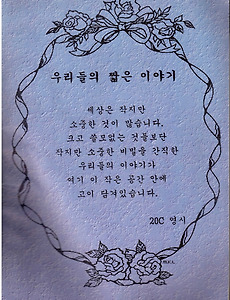 우리들의 짧은 이야기
세상은 작지만
소중한 것이 많습니다.
크고 쓸모없는 것들보단
작지만 소중한 비밀을 간직한
우리들의 이야기가
여기 이 작은 공간 안에
고이 담겨있습니다.
20C 영시